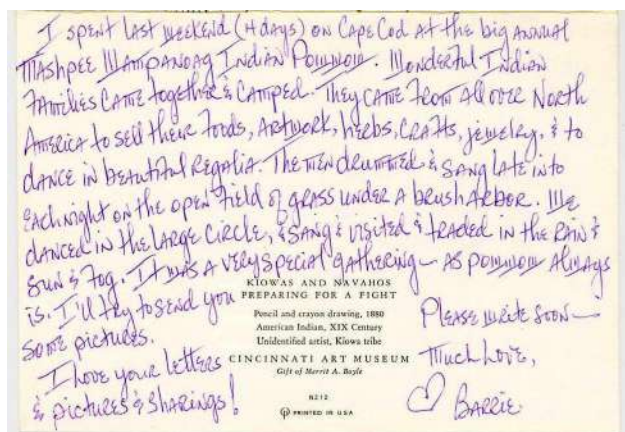 I spent last weekend (4 days) on Cape Cod at the big annual
Mashpee Wampanoag Indian Powwow. Wonderful Indian
families came together & camped. They came from all over North
America to sell their foods, artwork, herbs, crafts, jewelry, & to
dance in beautiful regalia. The men drummed & sang late into
each night on the open field of grass under a brush arbor. We
danced in the large circle, & sang & visited & traded in the rain &
sun & fog. It was a very special gathering — as powwow always
is. I'll try to send you
some pictures.
I love your letters
& pictures & sharings!
KIOWAS AND NAVAHOS
PREPARING FOR A FIGHT
Pencil and crayon drawing, 1880
American Indian, XIX Century
Unidentified artist, Kiowa tribe
CINCINNATI ART MUSEUM
Gift of Merrit A. Boyle
N212
PRINTED IN USA
Please write soon —
Much love,
♡ Barrie